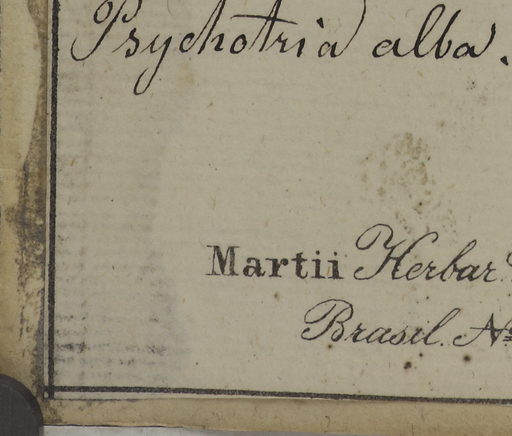 Psychotria alba.
Martii Herbar.
Brasil. No